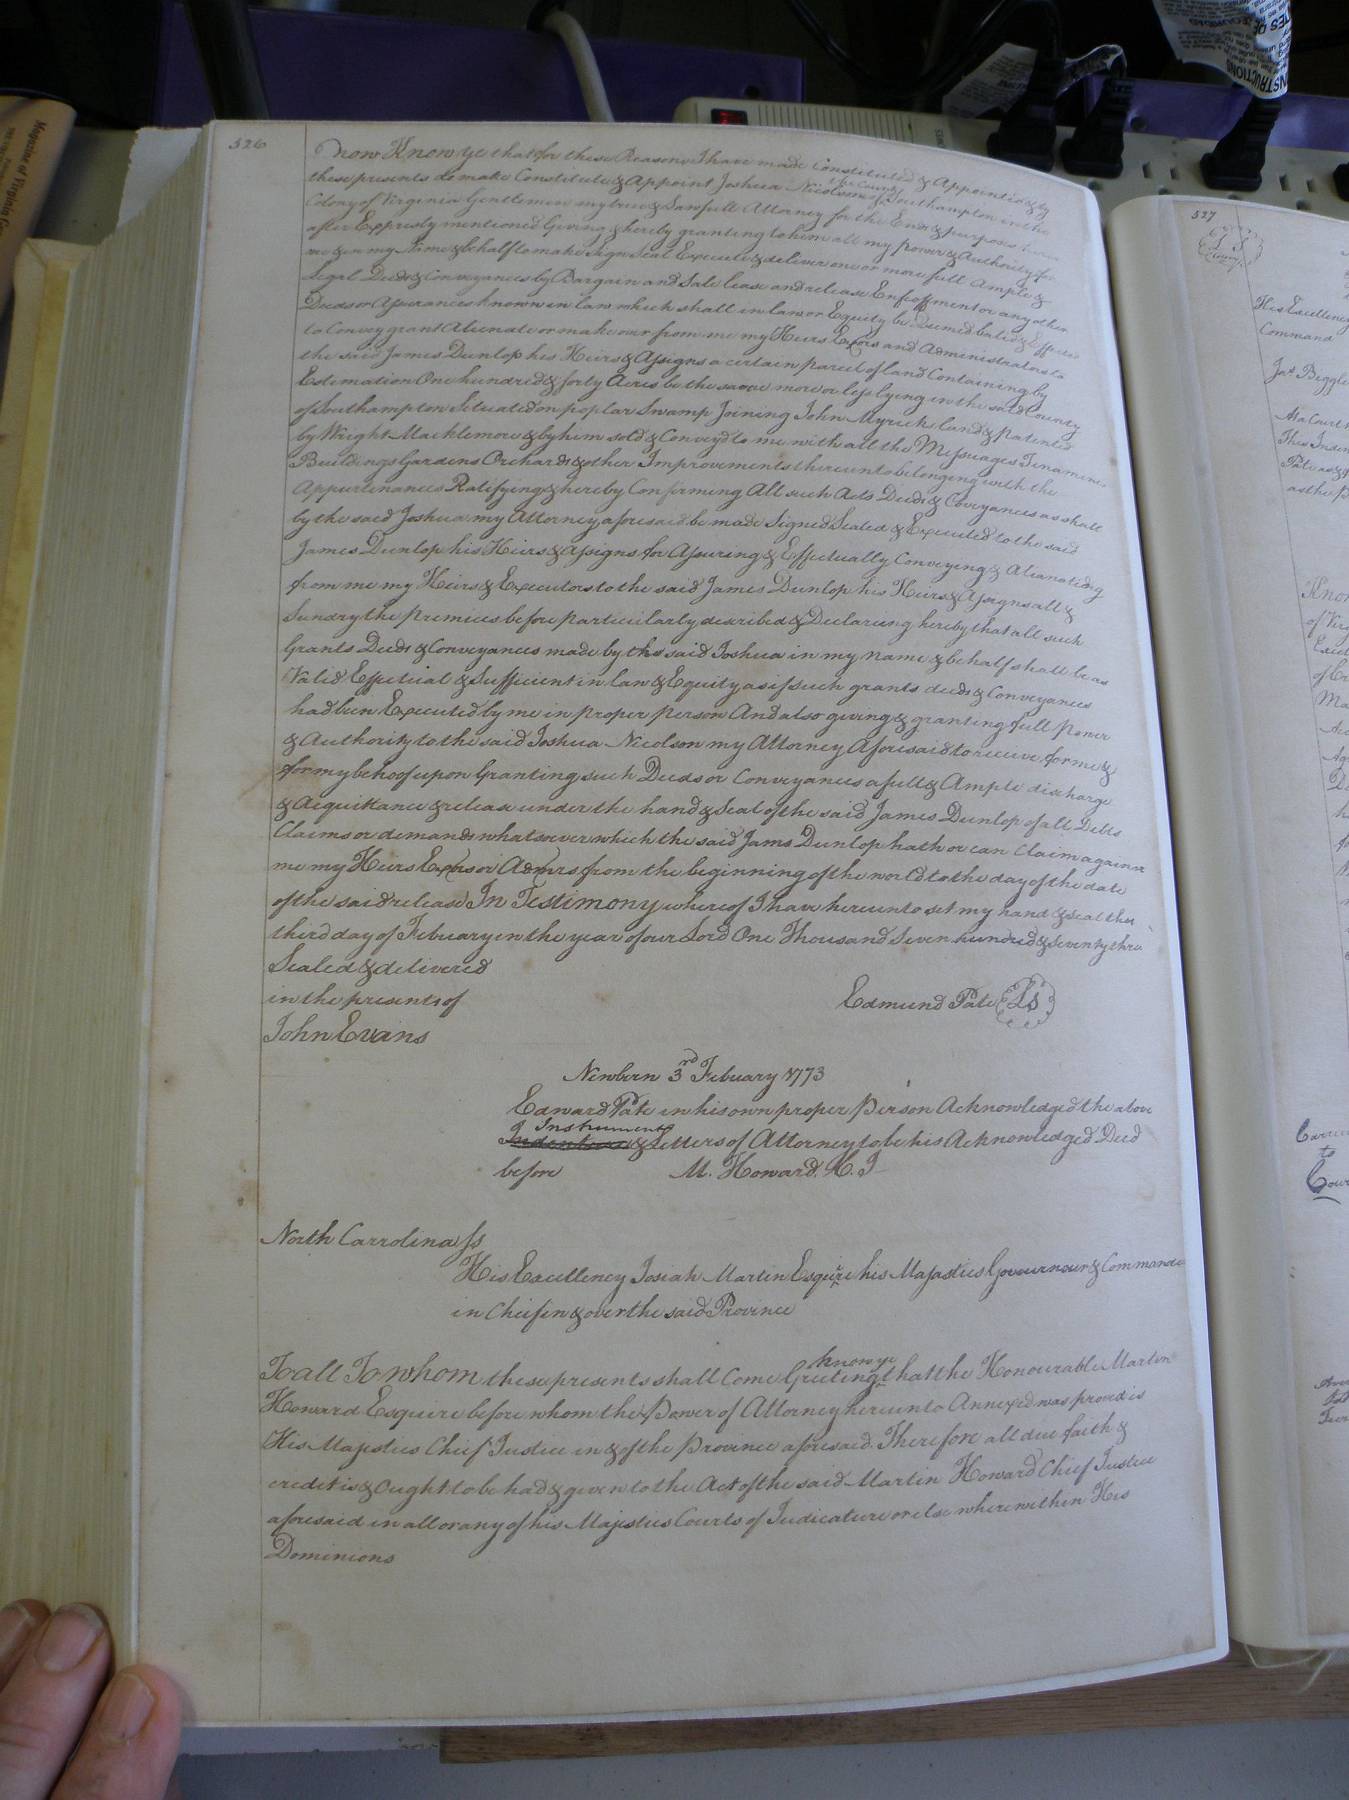 526
Now Know ye that for these Reasons I have made Constituted & Appointed & by
these presents do make Constitute & Appoint Joshua Nicolson of the County of Southampton in the
Colony of Virginia Gentleman my true & Lawfull Attorney for the Ends & purposes
after Expresly mentioned Giving & hereby granting to him all my power & Authority for
me & in my Name & behalf to make Sign Seal Execute & deliver one or more full Ample &
legal Deeds & Conveyances by Bargain and Sale lease and release Enfeoffment or any other
Deeds or Assurances known in law which shall in law or Equity be Deemed Valid &
to Convey grant Alienate or make over from me my Heirs Exors and Administrators to
the said James Dunlop his Heirs & Assigns a certain parcel of land Containing by
Estimation One hundred & forty Acres be the same more or less lying in the said County
of Southampton Situated on poplar Swamp Joining John Myrick land & patented
by Wright Macklemore & by him sold & Convey'd to me with all the Messuages Tenaments
Buildings Gardens Orchards & other Improvements thereunto belonging with the
Appurtinances Ratifying & hereby Confirming All such Acts Deeds & Coveyances as shall
by the said Joshua my Attorney aforesaid be made Signed Sealed & Executed to the said
James Dunlop his Heirs & Assigns for Assuring & Effectually Conveying & Alianating
from me my Heirs & Executors to the said James Dunlop his Heirs & Assigns all &
Sundry the premices before particularly described & Declaring hereby that all such
Grants Deeds & Conveyances made by the said Joshua in my name & behalf shall be as
Valid Effectual & Sufficient in law & Equity as if such grants deeds & Conveyances
had been Executed by me in proper person And also giving & granting full Power
& Authority to the said Joshua Nicolson my Attorney Aforesaid to receive for me &
for my behoof upon Granting such Deeds or Conveyances a full & Ample discharge
& Acquittance & release under the hand & Seal of the said James Dunlop of all Debts
Claims or demands whatsoever which the said Jams Dunlop hath or can Claim against
me my Heirs Exors or Admrs from the beginning of the world to the day of the date
of the said release In Testimony whereof I have hereunto set my hand & seal this
third day of Febuary in the year of our Lord One Thousand Seven hundred & seventy three
Sealed & delivered
in the presents of
Edmund Pate LS
John Evans
Newbern 3rd Febuary 1773
Edward Pate in his own proper Person Acknowledged the above
Instrument
Indenture & Letters of Attorney to be his Acknowledged Deed
before M. Howard. C. J
North Carrolina Ss
His Excellency Josiah Martin Esquire his Majasties Governour & Commander
in Cheif in & over the said Province
To all To whom these presents shall Come Greeting know ye that the Honourable Martin
Howard Esquire before whom the Power of Attorney hereunto Annexed was proved is
His Majesties Chief Justice in & of the Province aforesaid. Therefore all due faith &
credit is & Ought to be had & given to the Act of the said Martin Howard Chief Justice
aforesaid in all or any of his Majesties Courts of Judicature or else where within His
Dominions
527
L S
His Excellency
Command
This Inden
Magazine of Virginia
INSTRUCTIONS